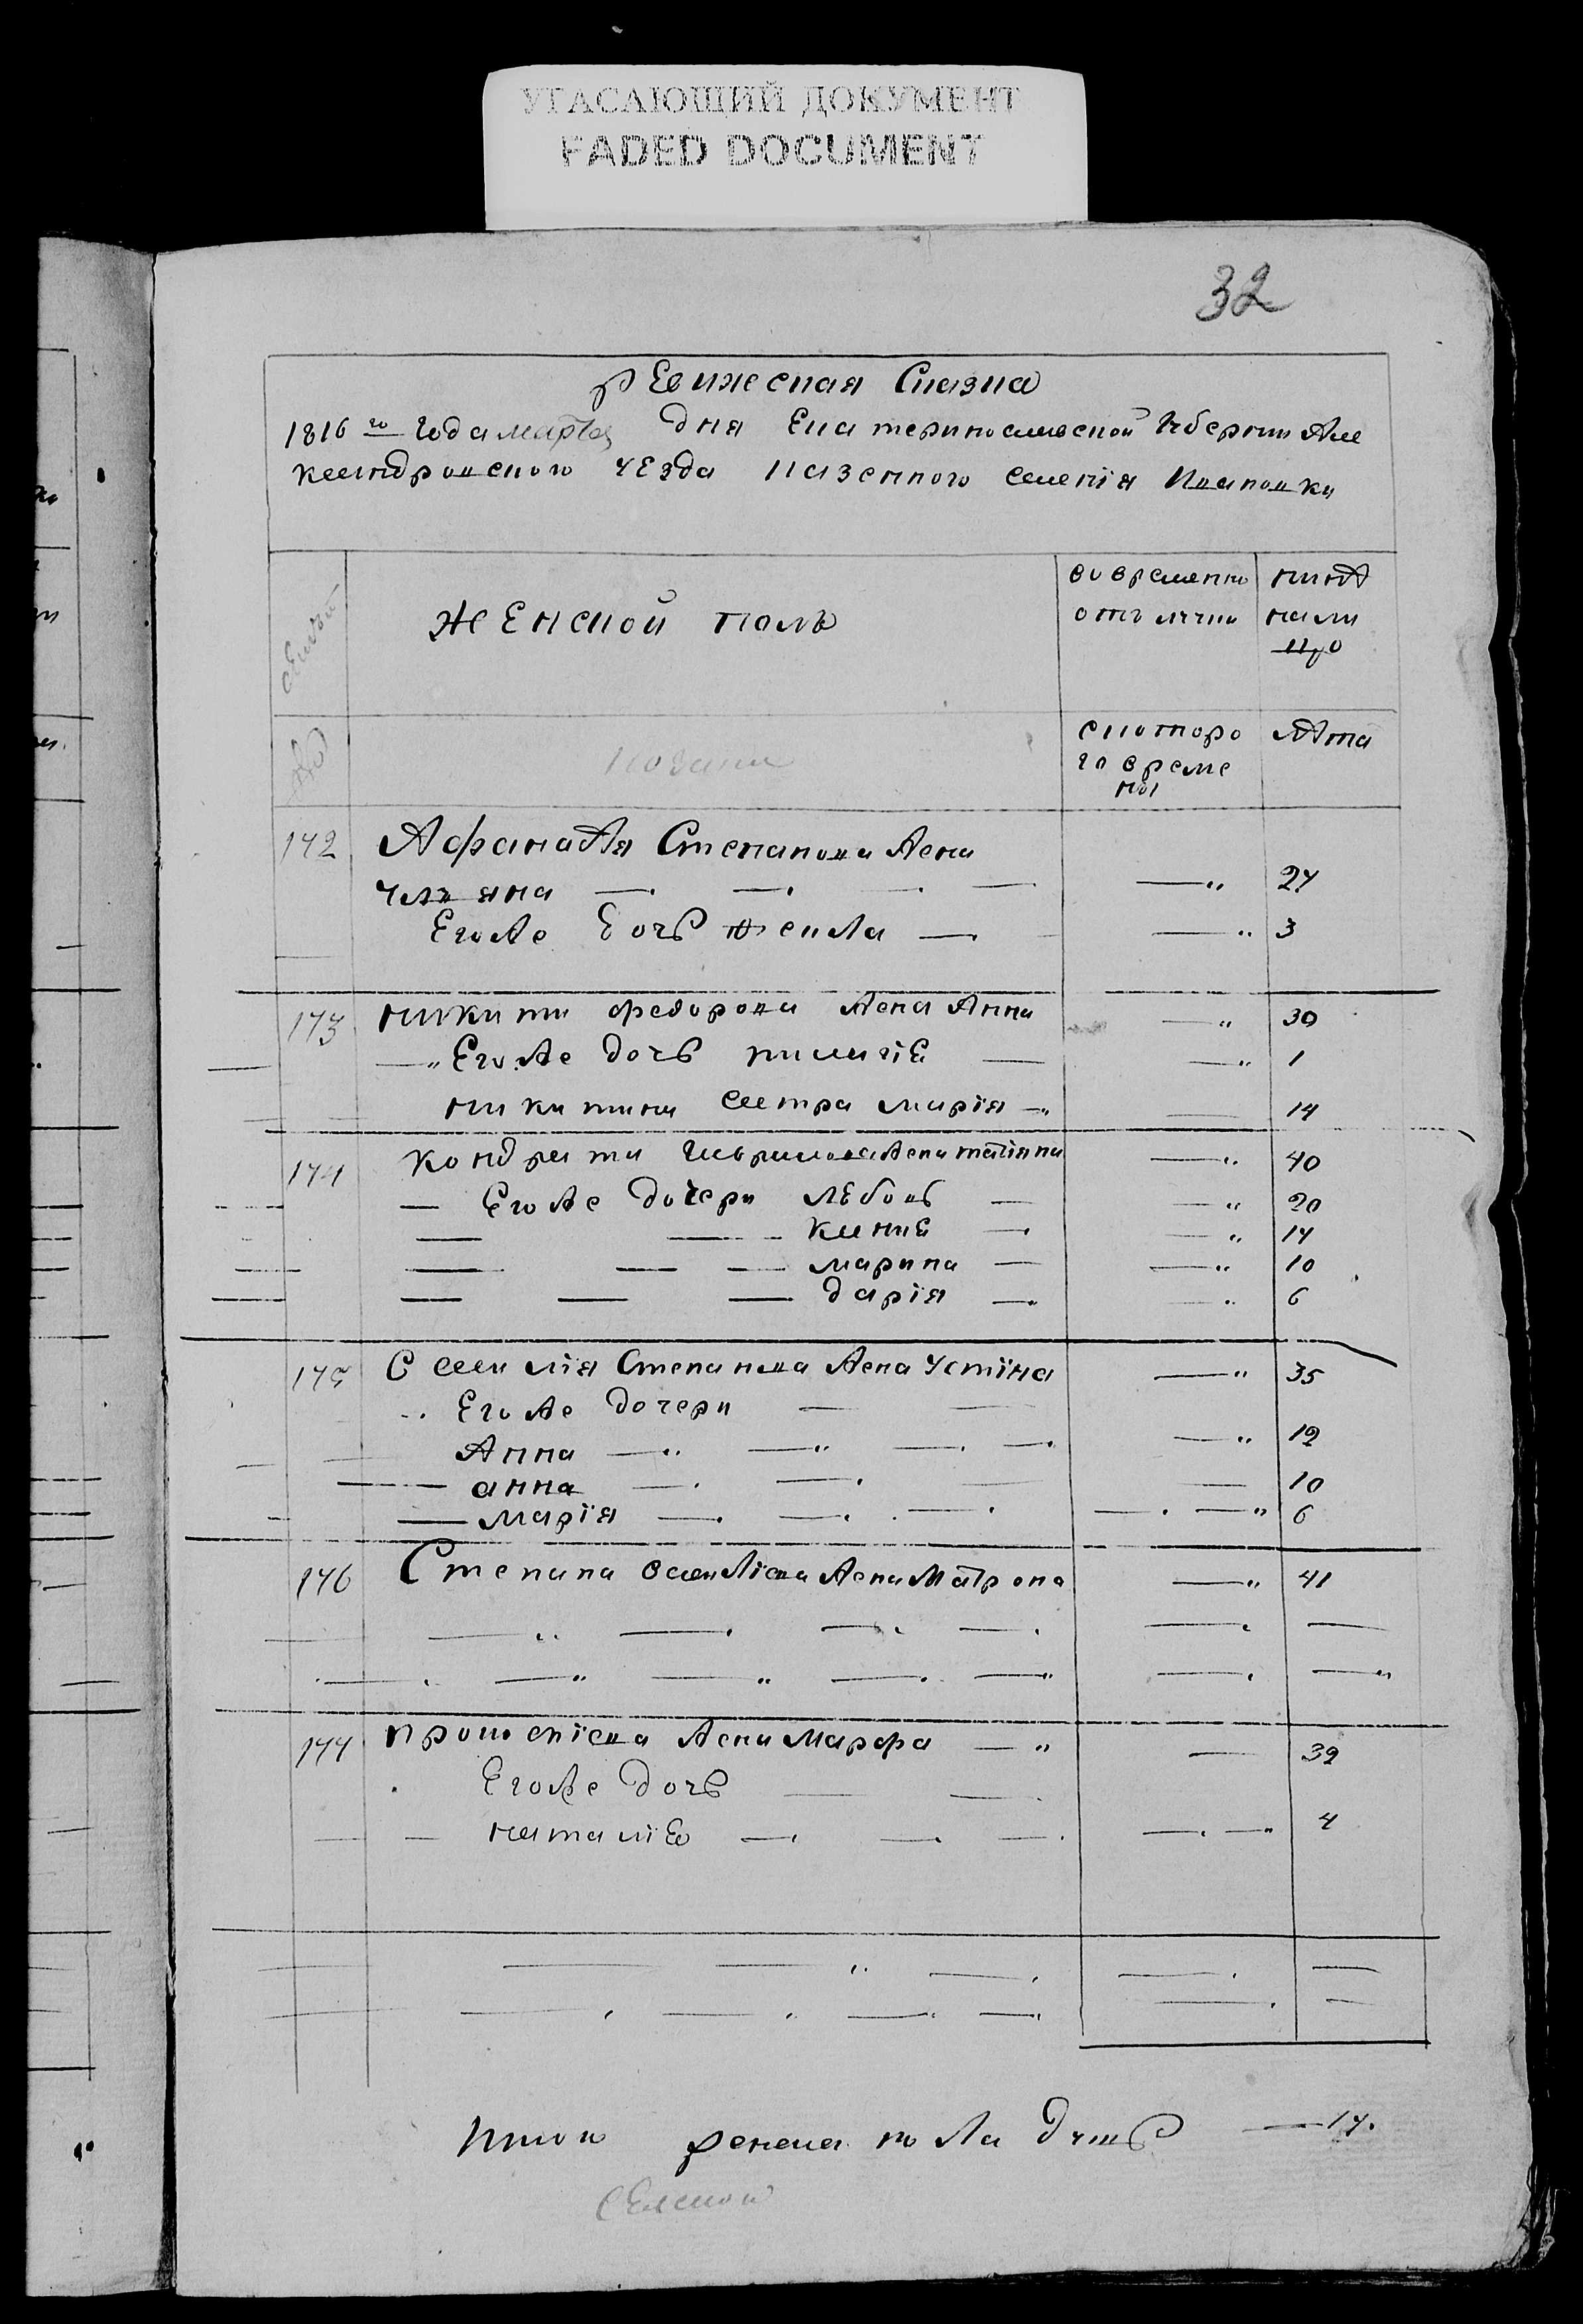 УГАСАЮЩИЙ ДОКУМЕНТ
FADED DOCUMENT
32
ревижская Сказка
1816 го года марта дня Екатеринославской губернии Але
ксандровского уезда казенного селения Ивановки
семьи
женской полъ
во временно
отълучки
ныне
нали
цо
№
козаки
с которо
го време
ны
лета
172 Афанасія Степанова жена
улияна 27
Егоже дочь фекла 3
173 никиты федорова жена Анна 30
Егоже дочь 1
никитина сестра марія 14
174 кондрата гаврилова жена татіяна 40
Егоже дочери 20
14
марина 10
дарія 6
175 Степанова жена устіна 35
Егоже дочери
Анна 12
анна 10
марія 6
176 Степана василіева жена Матрона 41
177 прокофіева жена Марфа 32
Егоже дочь
наталіе 4
Итого женска пола душъ 17.
селской